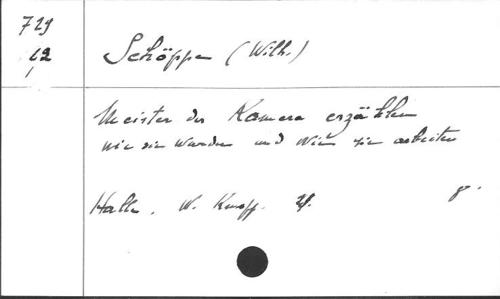 729
12
Schöppe (Wilh.)
Meister der Kamera erzählen
wie sie wurden und wie sie arbeiten
Halle. W. Knapp. 8.